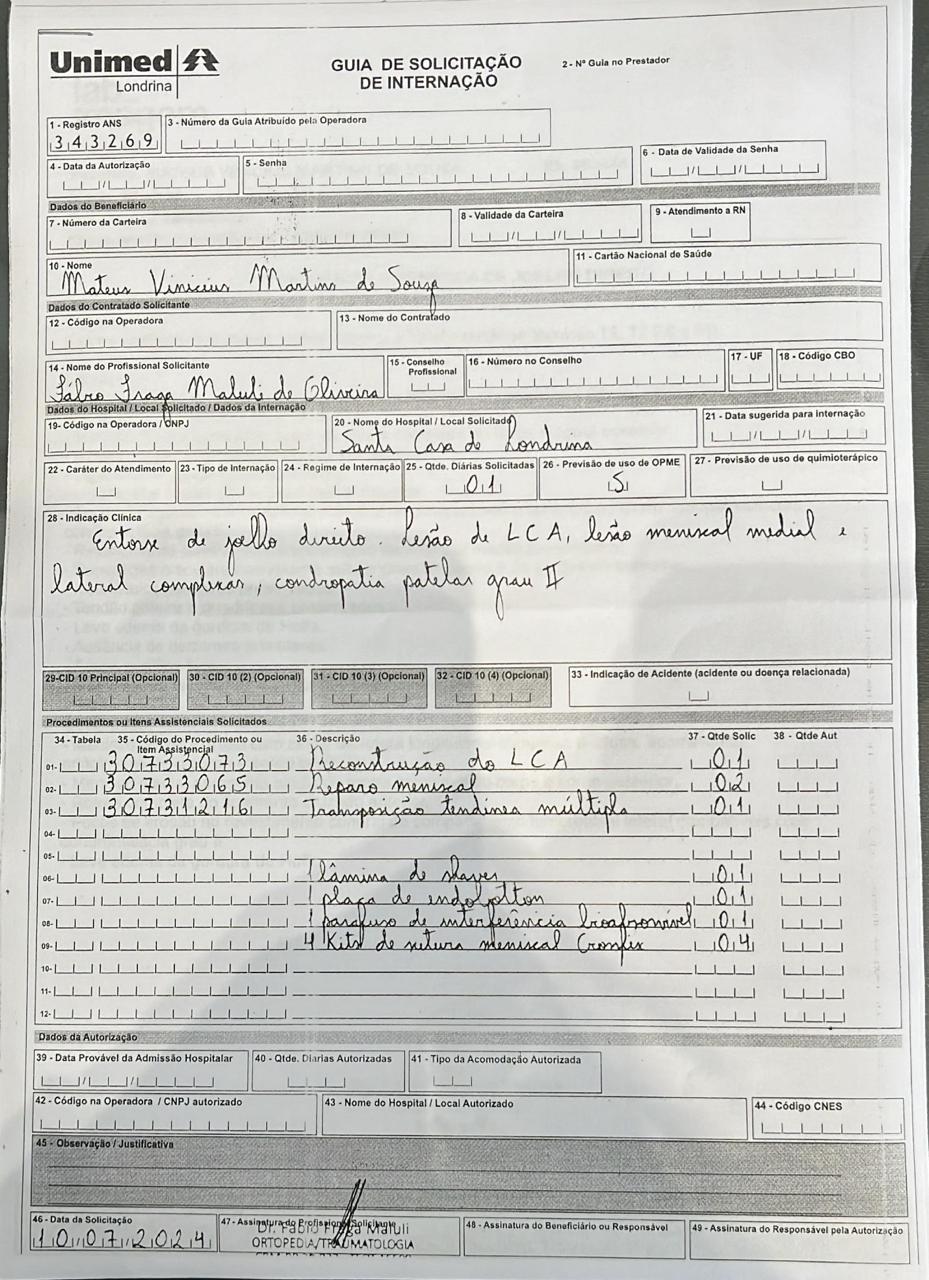 Unimed
Londrina
GUIA DE SOLICITAÇÃO
DE INTERNAÇÃO
2 - Nº Guia no Prestador
1 - Registro ANS
343269
3 - Número da Guia Atribuído pela Operadora
4 - Data da Autorização
5 - Senha
6 - Data de Validade da Senha
Dados do Beneficiário
7 - Número da Carteira
8 - Validade da Carteira
9 - Atendimento a RN
10 - Nome
Mateus Vinicius Martins de Souza
11 - Cartão Nacional de Saúde
Dados do Contratado Solicitante
12 - Código na Operadora
13 - Nome do Contratado
14 - Nome do Profissional Solicitante
Fábio Fraga Maluli de Oliveira
15 - Conselho
Profissional
16 - Número no Conselho
17 - UF
18 - Código CBO
Dados do Hospital / Local Solicitado / Dados da Internação
19- Código na Operadora / CNPJ
20 - Nome do Hospital / Local Solicitado
Santa Casa de Londrina
21 - Data sugerida para Internação
22 - Caráter do Atendimento
23 - Tipo de Internação
24 - Regime de Internação
25 - Qtde. Diárias Solicitadas
01
26 - Previsão de uso de OPME
S
27 - Previsão de uso de quimioterápico
28 - Indicação Clínica
Entorse de joelho direito. Lesão de LCA, lesão meniscal medial e
lateral complexas, condropatia patelar grau II
29-CID 10 Principal (Opcional)
30 - CID 10 (2) (Opcional)
31 - CID 10 (3) (Opcional)
32 - CID 10 (4) (Opcional)
33 - Indicação de Acidente (acidente ou doença relacionada)
Procedimentos ou Itens Assistenciais Solicitados
34 - Tabela 35 - Código do Procedimento ou Item Assistencial 36 - Descrição 37 - Qtde Solic 38 - Qtde Aut
01- 30733073 Reconstrução do LCA 01
02- 30733065 Reparo meniscal 02
03- 30731216 Transposição tendinea múltipla 01
04-
05-
06- 1 lâmina de shaver 01
07- 1 placa de endobotton 01
08- 1 parafuso de interferência 01
09- 4 Kits de sutura meniscal 04
10-
11-
12-
Dados da Autorização
39 - Data Provável da Admissão Hospitalar
40 - Qtde. Diarias Autorizadas
41 - Tipo da Acomodação Autorizada
42 - Código na Operadora / CNPJ autorizado
43 - Nome do Hospital / Local Autorizado
44 - Código CNES
45 - Observação / Justificativa
46 - Data da Solicitação
10 07 2024
47 - Assinatura do Profissional Solicitante
Dr. Fábio Fraga Maluli
ORTOPEDIA/TRAUMATOLOGIA
48 - Assinatura do Beneficiário ou Responsável
49 - Assinatura do Responsável pela Autorização